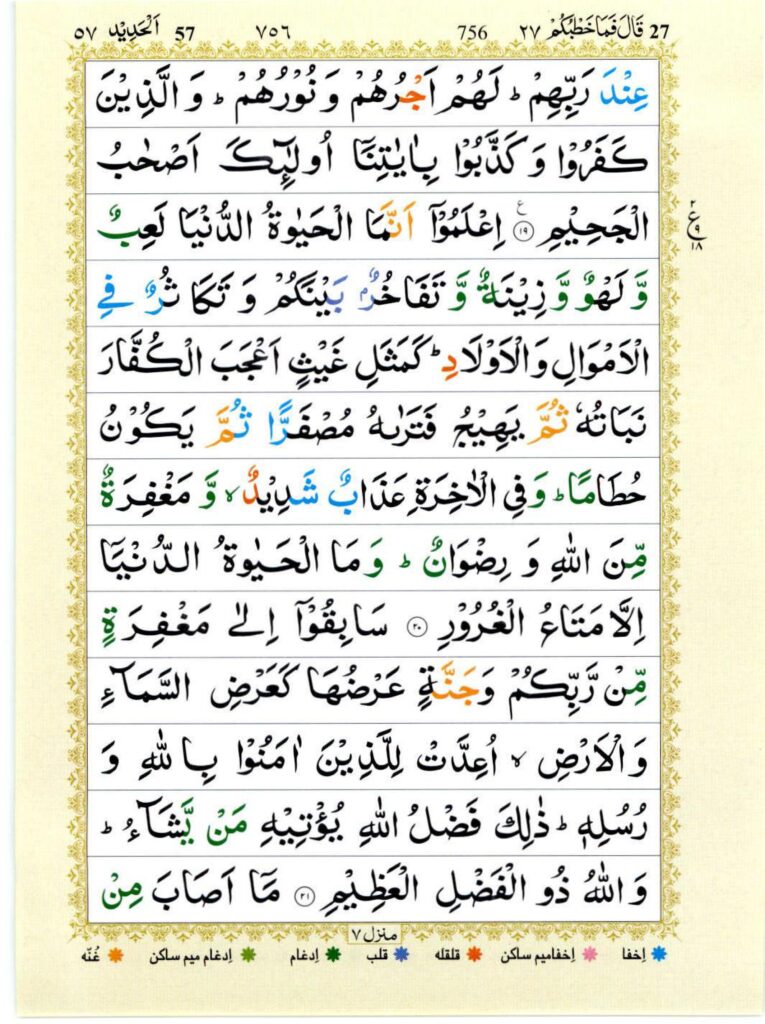 27 قَالَ فَمَا خَطْبُكُمْ ٢٧ 756 ٧٥٦ 57 اَلْحَدِيْد ٥٧
عِنْدَ رَبِّهِمْ ؕ لَهُمْ اَجْرُهُمْ وَ نُوْرُهُمْ ؕ وَ الَّذِيْنَ
كَفَرُوْا وَ كَذَّبُوْا بِاٰيٰتِنَاۤ اُولٰٓئِكَ اَصْحٰبُ
الْجَحِيْمِ ۧ‏ ﴿١٩﴾ اِعْلَمُوْۤا اَنَّمَا الْحَيٰوةُ الدُّنْيَا لَعِبٌ
٢ ع ٩ ١٨
وَّ لَهْوٌ وَّ زِيْنَةٌ وَّ تَفَاخُرٌۢ بَيْنَكُمْ وَ تَكَاثُرٌ فِي
الْاَمْوَالِ وَالْاَوْلَادِ ؕ كَمَثَلِ غَيْثٍ اَعْجَبَ الْكُفَّارَ
نَبَاتُهٗ ثُمَّ يَهِيْجُ فَتَرٰىهُ مُصْفَرًّا ثُمَّ يَكُوْنُ
حُطَامًا ؕ وَفِي الْاٰخِرَةِ عَذَابٌ شَدِيْدٌ ۙ وَّ مَغْفِرَةٌ
مِّنَ اللّٰهِ وَ رِضْوَانٌ ؕ وَ مَا الْحَيٰوةُ الدُّنْيَاۤ
اِلَّا مَتَاعُ الْغُرُوْرِ ﴿٢٠﴾ سَابِقُوْۤا اِلٰى مَغْفِرَةٍ
مِّنْ رَّبِّكُمْ وَجَنَّةٍ عَرْضُهَا كَعَرْضِ السَّمَآءِ
وَ الْاَرْضِ ۙ اُعِدَّتْ لِلَّذِيْنَ اٰمَنُوْا بِاللّٰهِ وَ
رُسُلِهٖ ؕ ذٰلِكَ فَضْلُ اللّٰهِ يُؤْتِيْهِ مَنْ يَّشَآءُ ؕ
وَ اللّٰهُ ذُو الْفَضْلِ الْعَظِيْمِ ﴿٢١﴾ مَاۤ اَصَابَ مِنْ
منزل ٧
اِخفا اِخفامیم ساکن قلقله قلب اِدغام اِدغام میم ساکن غُنّه